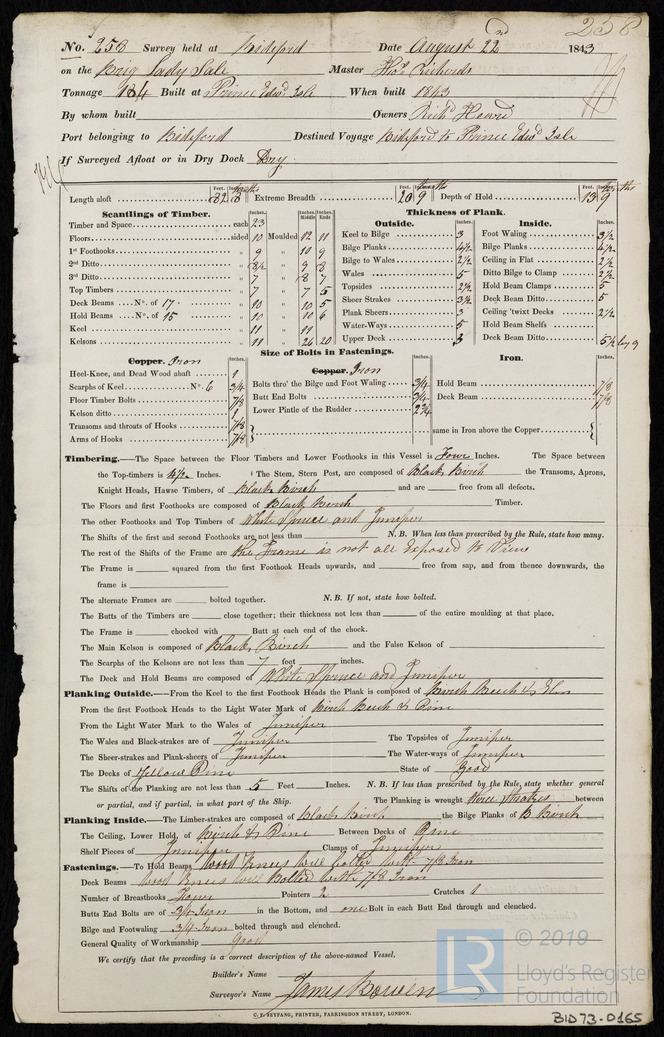 258
No. 258 Survey held at Bideford Date August 22nd 1843
on the Brig Lady Sale Master Thos Richards
Tonnage 184 Built at Prince Edwd Isle When built 1843
By whom built Owners Richd Heard
Port belonging to Bideford Destined Voyage Bideford to Prince Edwd Isle
If Surveyed Afloat or in Dry Dock Dry
Feet. Inches. Feet. Inches. Feet. Inches.
Length aloft 82 8 Extreme Breadth 20 9 Depth of Hold 13 9
Scantlings of Timber.
Inches. Inches. Middle Inches. Ends
Timber and Space each 23
Floors sided 10 Moulded 12 11
1st Foothooks " 9 " 10 9
2nd Ditto " 8½ " 9 8
3rd Ditto " 7 " 8 7
Top Timbers " 7 " 7 5
Deck Beams No. of 17 " 10 " 10 5
Hold Beams No. of 15 " 10 " 10 6
Keel " 11 " 11
Kelsons " 11 " 26 20
Thickness of Plank.
Outside. Inches.
Keel to Bilge 3
Bilge Planks 4½
Bilge to Wales 2½
Wales 5
Topsides 2½
Sheer Strakes 3½
Plank Sheers 3
Water-Ways 5
Upper Deck 3
Inside. Inches.
Foot Waling 3½
Bilge Planks 4½
Ceiling in Flat 2½
Ditto Bilge to Clamp 2½
Hold Beam Clamps 5
Deck Beam Ditto 5
Ceiling 'twixt Decks 2½
Hold Beam Shelfs
Deck Beam Ditto 5½ by 9
Size of Bolts in Fastenings.
Copper. Iron Inches.
Heel-Knee, and Dead Wood abaft 1
Scarphs of Keel No. 6 3/4
Floor Timber Bolts 7/8
Kelson ditto 1
Transoms and throats of Hooks 7/8
Arms of Hooks 7/8
Copper. Iron Inches.
Bolts thro' the Bilge and Foot Waling 3/4
Butt End Bolts 3/4
Lower Pintle of the Rudder 2¾
Iron. Inches.
Hold Beam 7/8
Deck Beam 7/8
same in Iron above the Copper
Timbering.—The Space between the Floor Timbers and Lower Foothooks in this Vessel is Four Inches. The Space between
the Top-timbers is 4½ Inches. The Stem, Stern Post, are composed of Black Birch the Transoms, Aprons,
Knight Heads, Hawse Timbers, of Black Birch and are free from all defects.
The Floors and first Foothooks are composed of Black Birch Timber.
The other Foothooks and Top Timbers of White Spruce and Juniper
The Shifts of the first and second Foothooks are not less than N. B. When less than prescribed by the Rule, state how many.
The rest of the Shifts of the Frame are the Frame is not all Exposed to View
The Frame is squared from the first Foothook Heads upwards, and free from sap, and from thence downwards, the
frame is
The alternate Frames are bolted together. N. B. If not, state how bolted.
The Butts of the Timbers are close together; their thickness not less than of the entire moulding at that place.
The Frame is chocked with Butt at each end of the chock.
The Main Kelson is composed of Black Birch and the False Kelson of
The Scarphs of the Kelsons are not less than 7 feet inches.
The Deck and Hold Beams are composed of White Spruce and Juniper
Planking Outside.—From the Keel to the first Foothook Heads the Plank is composed of Birch Beech & Elm
From the first Foothook Heads to the Light Water Mark of Birch Beech & Pine
From the Light Water Mark to the Wales of Juniper
The Wales and Black-strakes are of Juniper The Topsides of Juniper
The Sheer-strakes and Plank-sheers of Juniper The Water-ways of Juniper
The Decks of Yellow Pine State of Good
The Shifts of the Planking are not less than 5 Feet Inches. N. B. If less than prescribed by the Rule, state whether general
or partial, and if partial, in what part of the Ship. The Planking is wrought three Strakes between
Planking Inside.—The Limber-strakes are composed of Black Birch the Bilge Planks of B Birch
The Ceiling, Lower Hold, of Birch & Pine Between Decks of Pine
Shelf Pieces of Juniper Clamps of Juniper
Fastenings.—To Hold Beams Wood Knees Well bolted with 7/8 Iron
Deck Beams Wood Knees Well Bolted with 7/8 Iron
Number of Breasthooks Four Pointers 2 Crutches 1
Butts End Bolts are of 3/4 Iron in the Bottom, and one Bolt in each Butt End through and clenched.
Bilge and Footwaling 3/4 Iron bolted through and clenched.
General Quality of Workmanship Good
We certify that the preceding is a correct description of the above-named Vessel,
Builder's Name
Surveyor's Name James Bowen
C. F. SEYFANG, PRINTER, FARRINGDON STREET, LONDON.
LR © 2019
Lloyd's Register
Foundation
BID73-0165